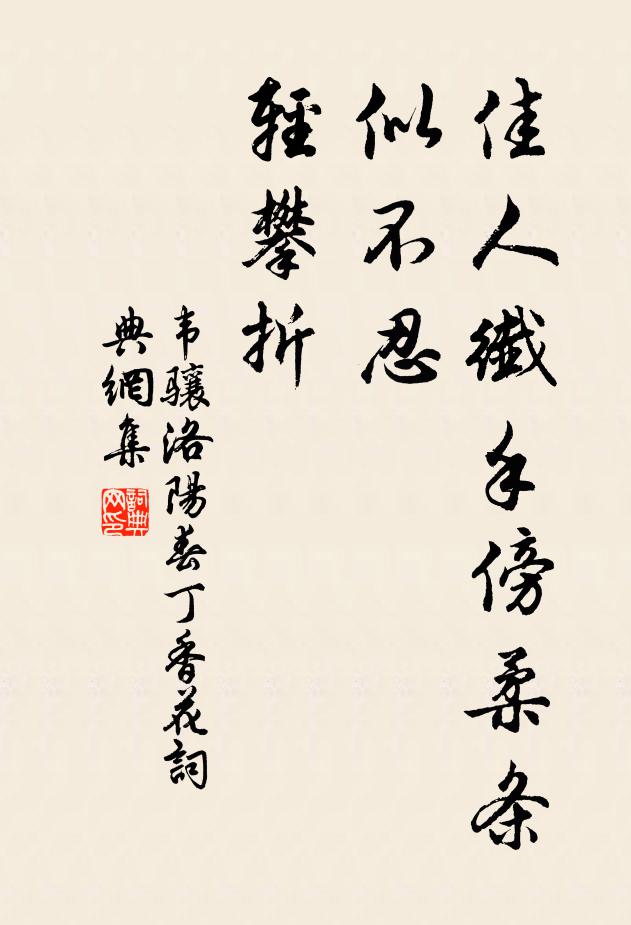 佳人纖手傍柔条
似不忍
輕攀折
韦驤洛陽春丁香花詞
典網集
詞典
网印